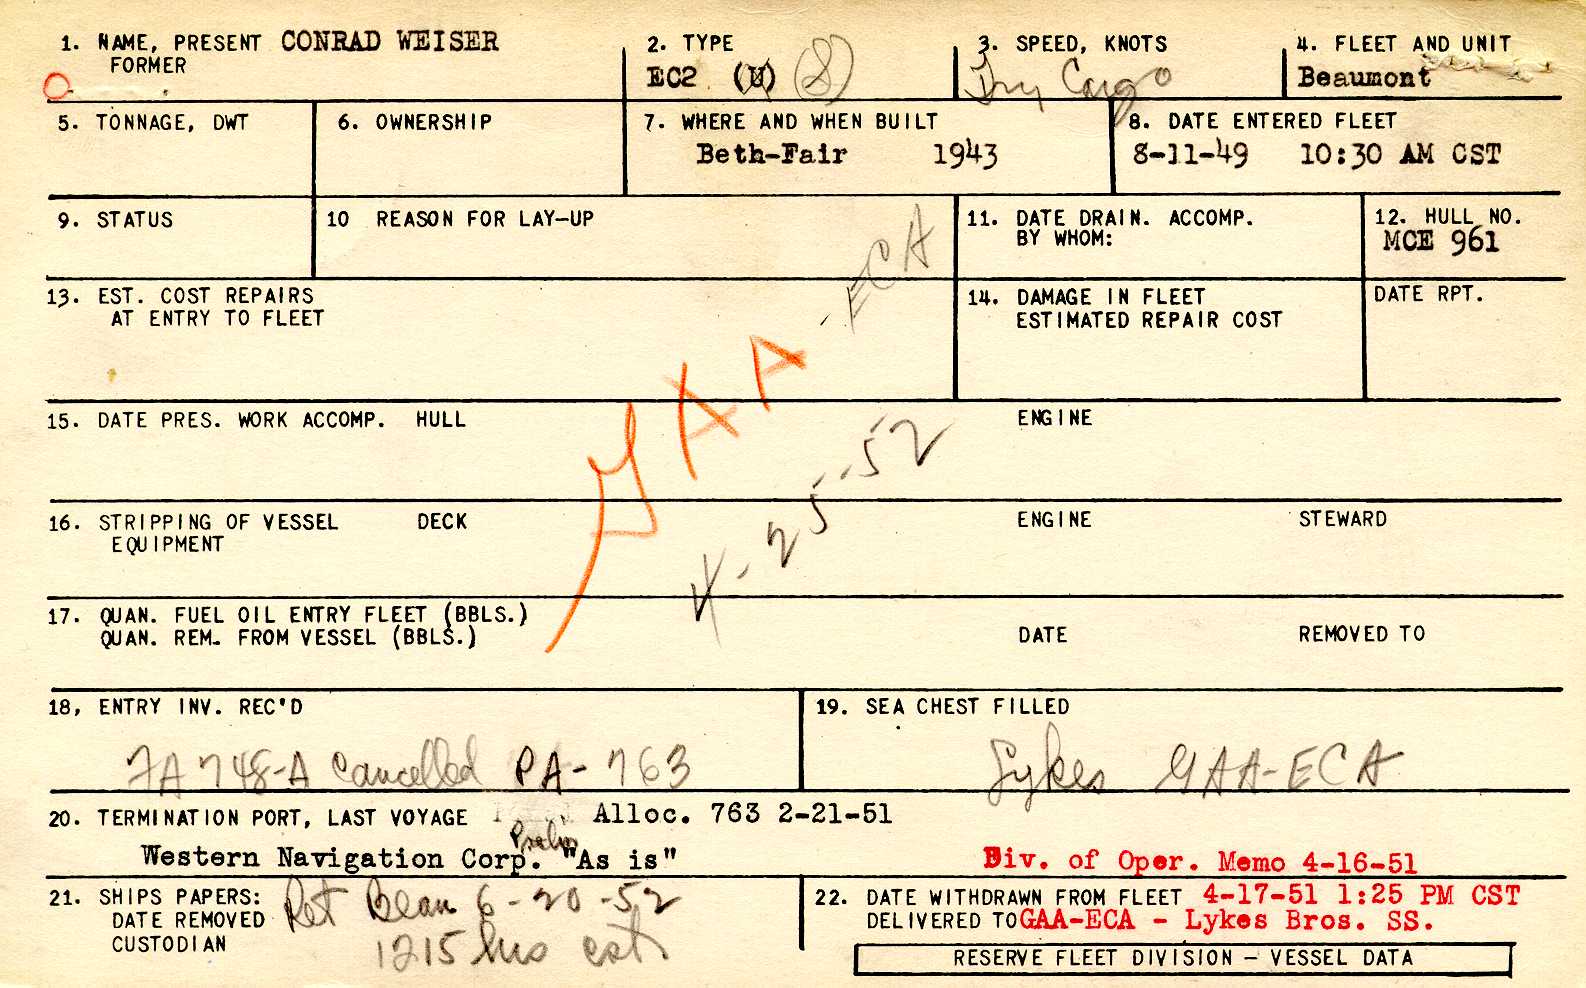 1. NAME, PRESENT CONRAD WEISER
FORMER
2. TYPE
EC2 (U) (S)
3. SPEED, KNOTS
Dry Cargo
4. FLEET AND UNIT
Beaumont
5. TONNAGE, DWT
6. OWNERSHIP
7. WHERE AND WHEN BUILT
Beth-Fair 1943
8. DATE ENTERED FLEET
8-11-49 10:30 AM CST
9. STATUS
10 REASON FOR LAY-UP
11. DATE DRAIN. ACCOMP.
BY WHOM:
12. HULL NO.
MCE 961
13. EST. COST REPAIRS
AT ENTRY TO FLEET
GAA - ECA
14. DAMAGE IN FLEET
ESTIMATED REPAIR COST
DATE RPT.
15. DATE PRES. WORK ACCOMP. HULL
ENGINE
4-25-52
16. STRIPPING OF VESSEL DECK
EQUIPMENT
ENGINE
STEWARD
17. QUAN. FUEL OIL ENTRY FLEET (BBLS.)
QUAN. REM. FROM VESSEL (BBLS.)
DATE
REMOVED TO
18, ENTRY INV. REC'D
7A748-A Cancelled PA-763
19. SEA CHEST FILLED
Lykes GAA-ECA
20. TERMINATION PORT, LAST VOYAGE Alloc. 763 2-21-51
Prelim
Western Navigation Corp. "As is"
Div. of Oper. Memo 4-16-51
21. SHIPS PAPERS:
DATE REMOVED
CUSTODIAN
Ret Beau 6-20-52
1215 hrs cst
22. DATE WITHDRAWN FROM FLEET 4-17-51 1:25 PM CST
DELIVERED TO GAA-ECA - Lykes Bros. SS.
RESERVE FLEET DIVISION - VESSEL DATA